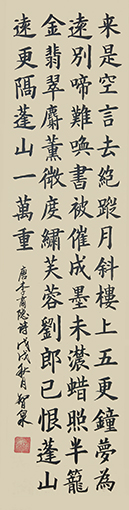 来是空言去絶蹤月斜樓上五更鐘夢為
遠别啼難喚書被催成墨未濃蠟照半籠
金翡翠麝薰微度繡芙蓉劉郎已恨蓬山
遠更隔蓬山一萬重
唐李商隱詩戊戌秋月智泉